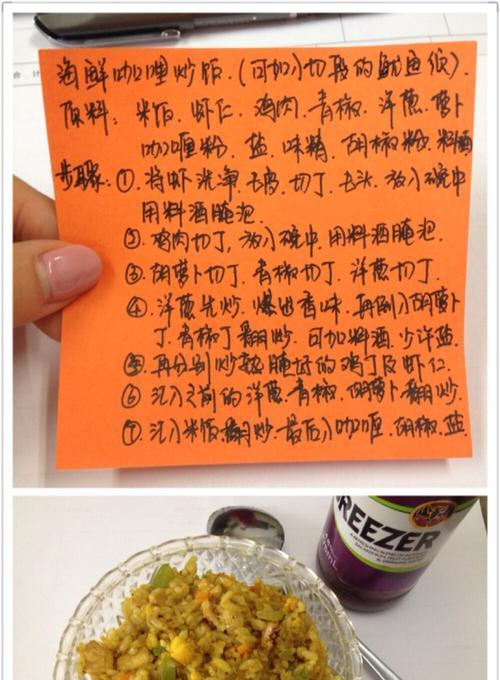 海鲜咖哩炒饭.(可加切段的鱿鱼须).
原料: 米饭. 虾仁. 鸡肉. 青椒. 洋葱. 萝卜
咖喱粉. 盐. 味精. 胡椒粉. 料酒
步骤: ①. 将虾洗净去皮. 切丁. 去头. 放入碗中
用料酒腌泡.
②. 鸡肉切丁, 放入碗中. 用料酒腌泡.
③. 胡萝卜切丁. 青椒切丁. 洋葱切丁.
④. 洋葱先炒. 爆出香味. 再倒入胡萝卜
丁. 青椒丁翻炒. 可加料酒. 少许盐.
⑤. 再分别炒熟腌好的鸡丁及虾仁.
⑥ 汇入之前的洋葱. 青椒. 胡萝卜翻炒.
⑦. 汇入米饭翻炒. 最后入咖喱. 胡椒. 盐.
BREEZER